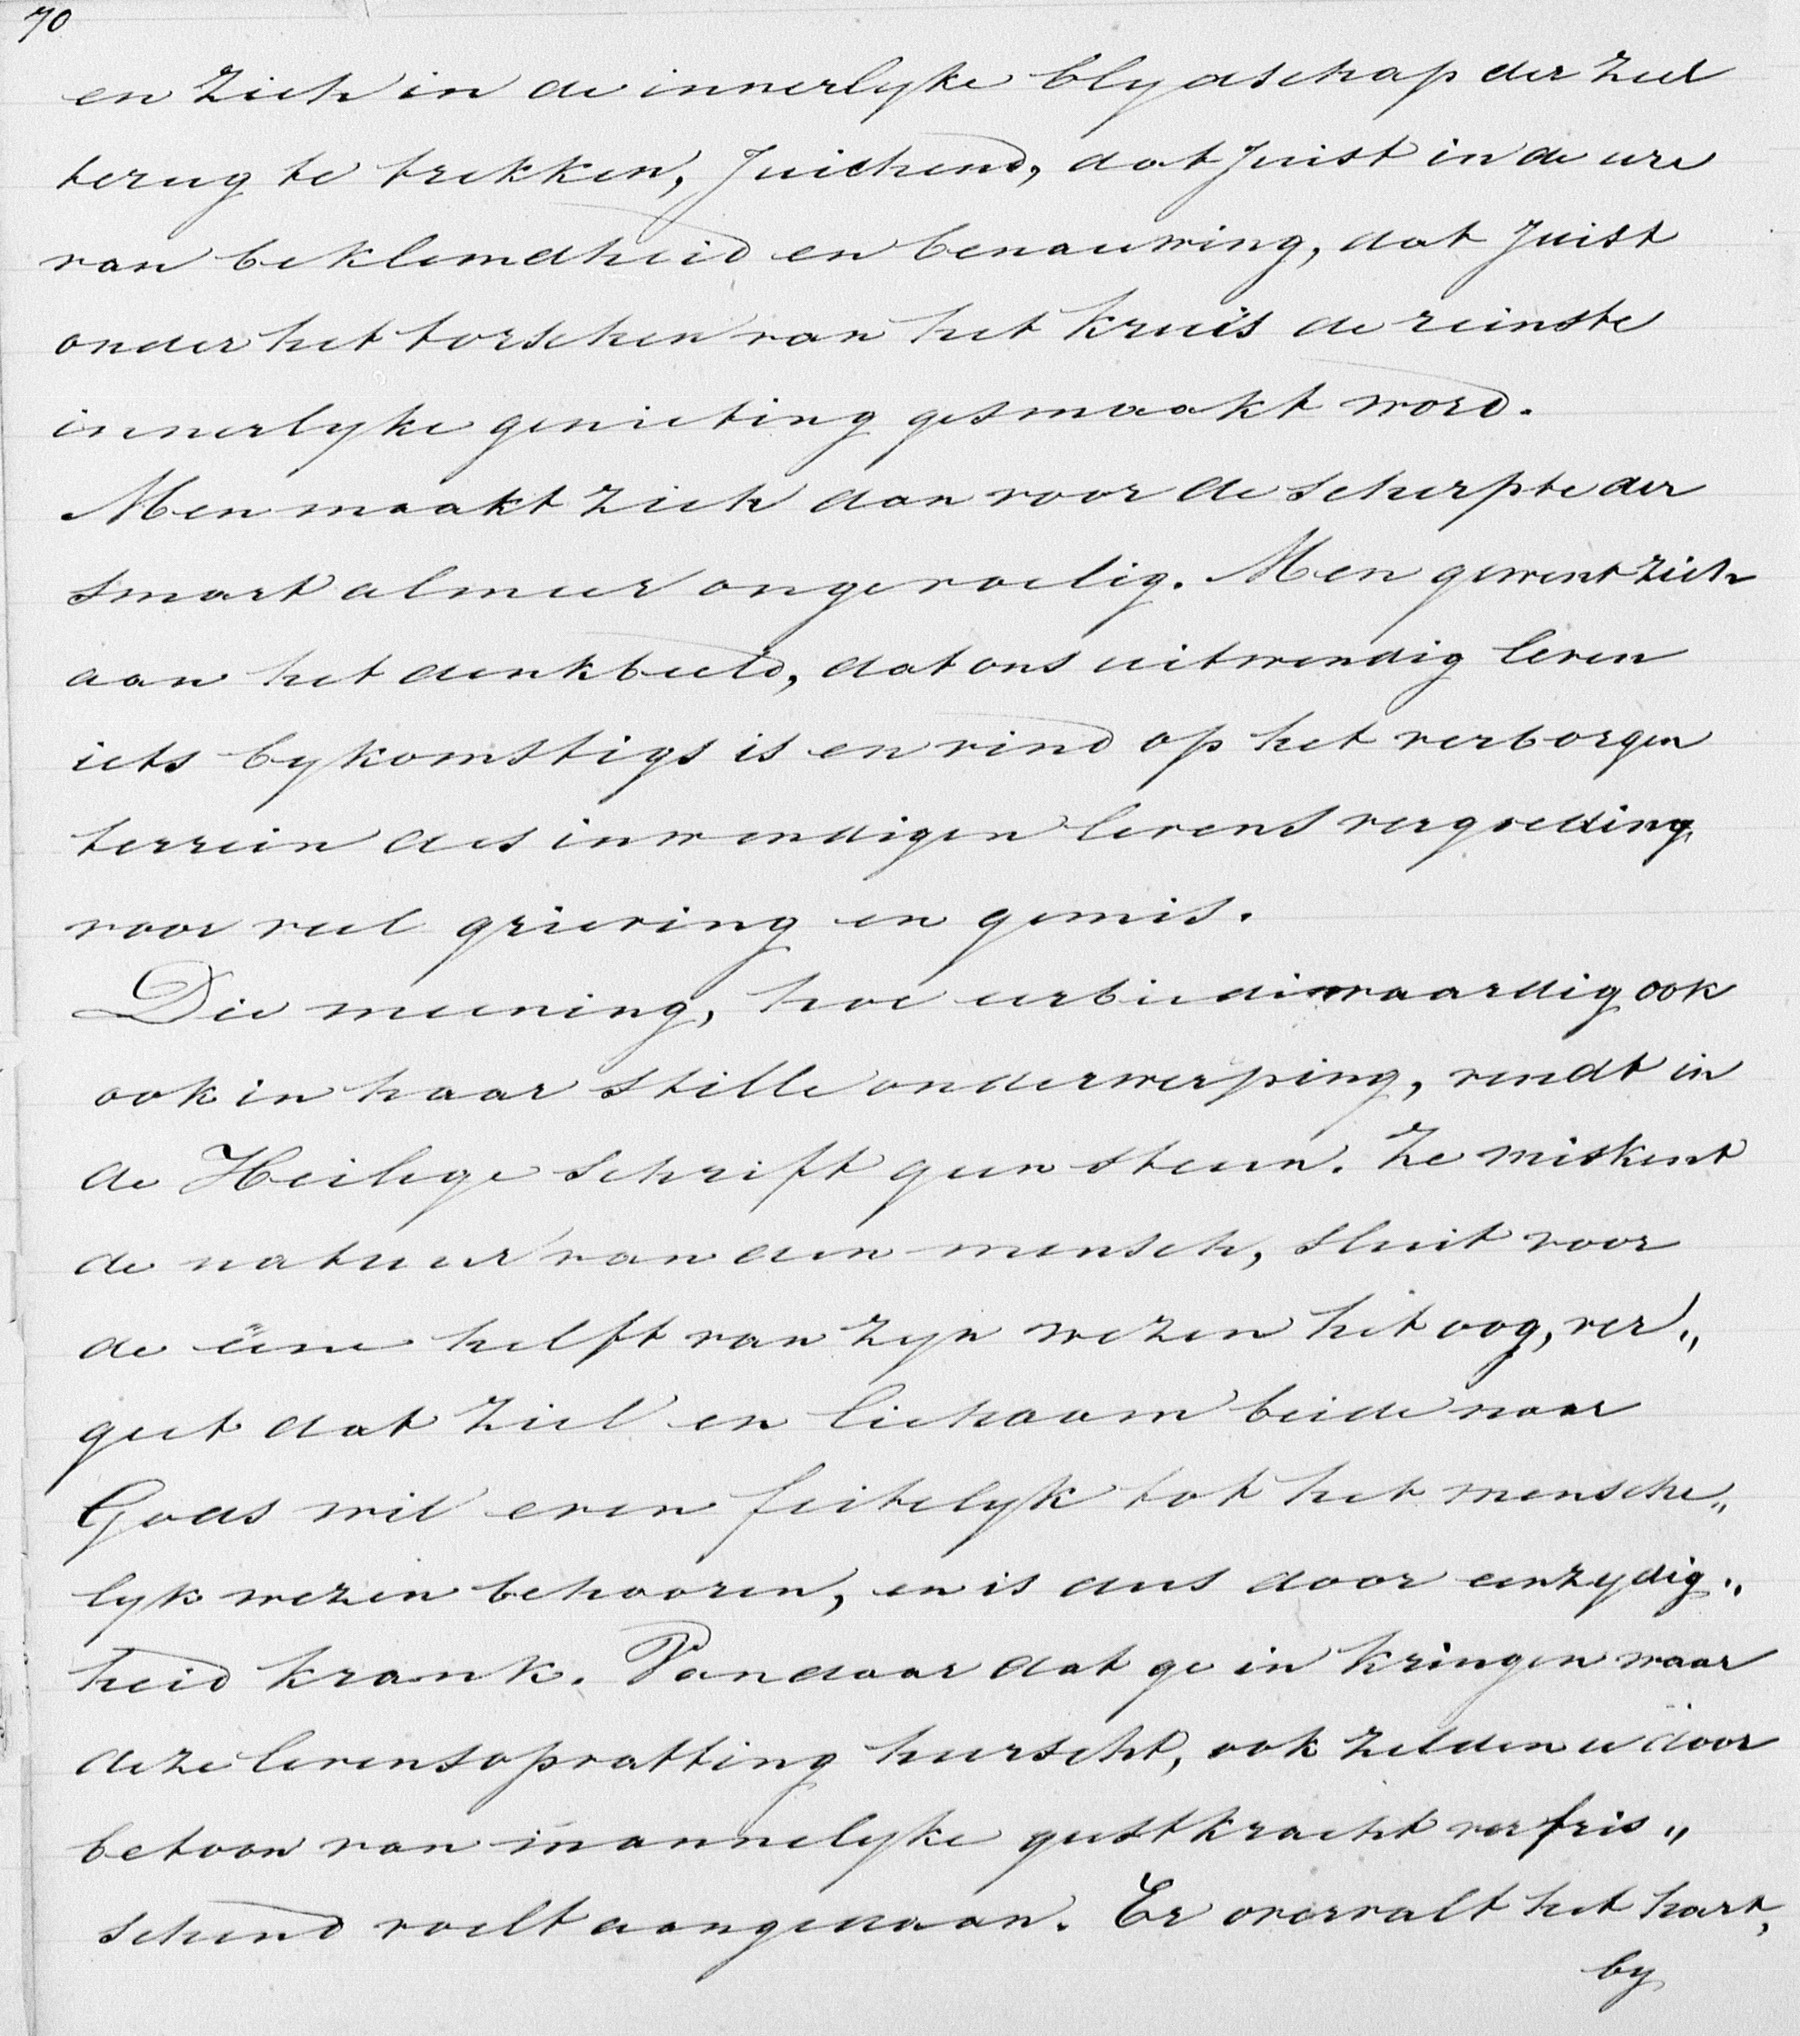 70
en zich in de innerlyke blydschap der ziel
terug te trekken, juichend, dat juist in de ure
van beklemdheid en benauwing, dat juist
onder het torschen van het kruis de reinste
innerlyke genieting gesmaakt word.
Men maakt zich dan voor de scherpte der
smart almeer ongevoelig. Men gewent zich
aan het denkbeeld, dat ons uitwendig leven
iets bykomstigs is en vind op het verborgen
terrein des inwendigen levens vergoeding
voor veel grieving en gemis.
Die meening, hoe eerbiedinwaardig ook
ook in haar stille onderwerping, vendt in
de Heilege schrift geen steun. Ze miskent
de natuur van den mensch, sluit voor
de eene helft van zyn wezen het oog, ver„
geet dat ziel en lichaam beide naar
Gods wil even feitelyk tot het mensche„
lyk wezen behooren, en is dus door eenzydig„
heid krank. Vandaar dat ge in kringen waar
deze levensopvatting heerscht, ook zelden u door
betoon van mannelyke geestkracht verfris„
schend voelt aangedaan. Er overvalt het hart,
by